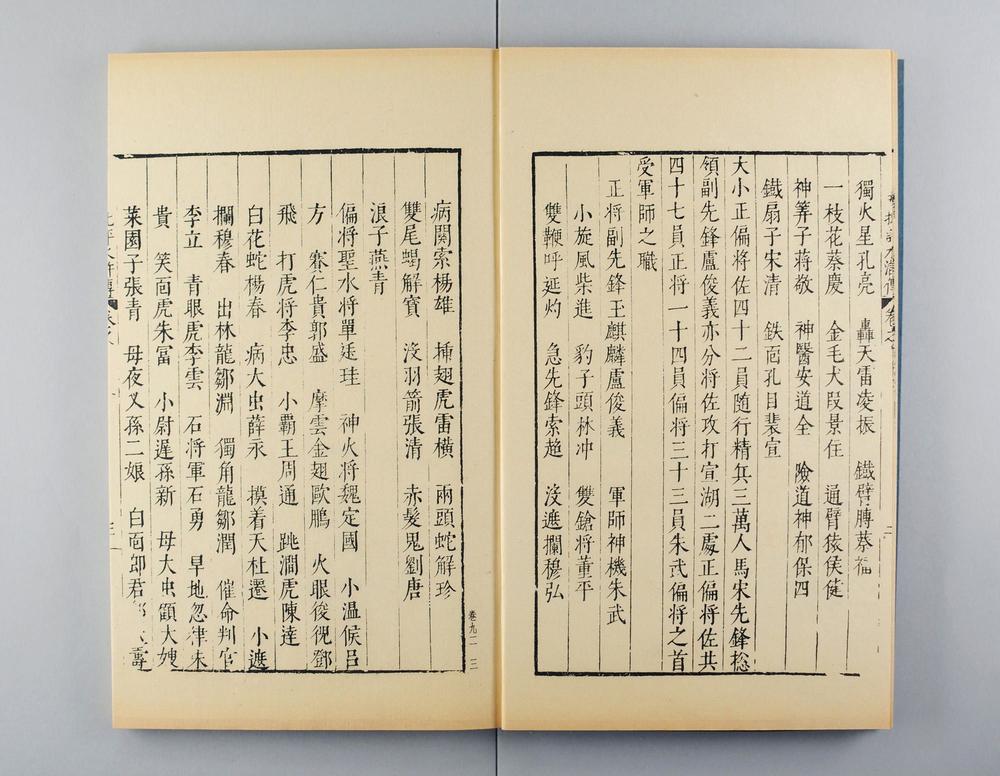 獨火星孔亮　轟天雷凌振　鐵臂膊蔡福
一枝花蔡慶　金毛犬段景住　通臂猿侯健
神筭子蔣敬　神醫安道全　險道神郁保四
鐵扇子宋清　鉄面孔目裴宣
大小正偏将佐四十二員随行精兵三萬人馬宋先鋒揔
領副先鋒盧俊義亦分将佐攻打宣湖二處正偏将佐共
四十七員正将一十四員偏将三十三員朱武偏将之首
受軍師之職
正将副先鋒玉麒麟盧俊義　軍師神機朱武
小旋風柴進　豹子頭林冲　雙鎗将董平
雙鞭呼延灼　急先鋒索超　没遮攔穆弘
病関索楊雄　挿翅虎雷横　兩頭蛇解珍
雙尾蝎解寳　没羽箭張清　赤髮鬼劉唐
浪子燕青
偏将聖水将單廷珪　神火将魏定國　小温候吕
方　賽仁貴郭盛　摩雲金翅歐鵬　火眼狻猊鄧
飛　打虎将李忠　小霸王周通　跳澗虎陳達
白花蛇楊春　病大虫薛永　摸着天杜遷　小遮
攔穆春　出林龍鄒淵　獨角龍鄒潤　催命判官
李立　青眼虎李雲　石将軍石勇　旱地忽律朱
貴　笑面虎朱富　小尉遲孫新　母大虫顧大嫂
菜園子張青　母夜叉孫二娘　白面郎君壽
卷九二　三